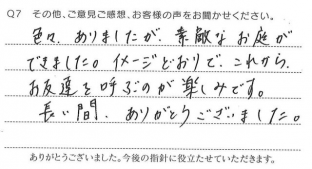 Q7 その他、ご意見ご感想、お客様の声をお聞かせください。
色々、ありましたが、素敵なお庭が
できました。イメージどおりで、これから、
お友達を呼ぶのが楽しみです。
長い間、ありがとうございました。
ありがとうございました。今後の指針に役立たせていただきます。